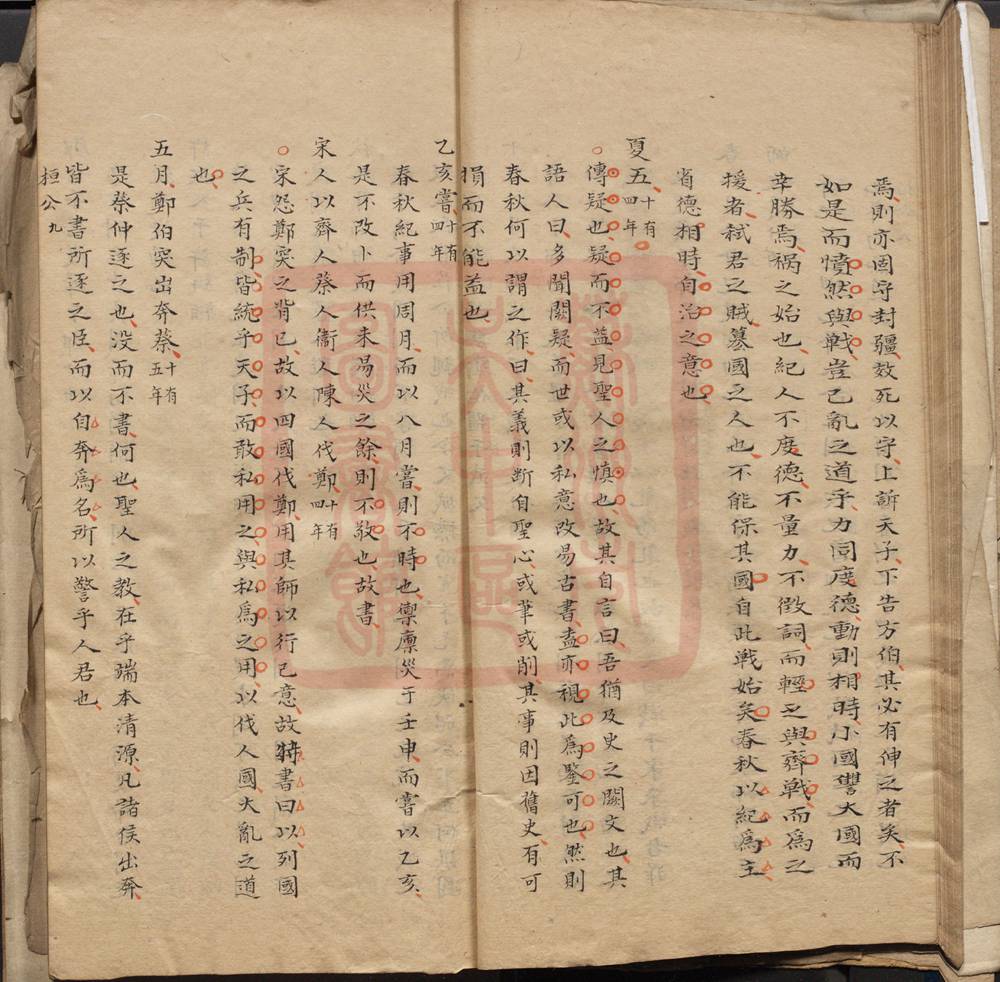 焉則亦固守封疆效死以守上訴天子下告方伯其必有伸之者矣不
如是而憤然與戰豈已亂之道乎力同度德動則相時小國讐大國而
幸勝焉禍之始也紀人不度德不量力不徵詞而輕之與齊戰而為之
援者弒君之賊簒國之人也不能保其國自此戰始矣春秋以紀為主
省德相時自治之意也
夏五十有四年
傳疑也疑而不益見聖人之慎也故其自言曰吾猶及史之闕文也其
語人曰多聞闕疑而世或以私意改易古書盍亦視此為鑒可也然則
春秋何以謂之作曰其義則斷自聖心或筆或削其事則因舊史有可
損而不能益也
乙亥嘗十有四年
春秋紀事用周月而以八月嘗則不時也禦廪災于壬申而嘗以乙亥
是不改卜而供未易災之餘則不敬也故書
宋人以齊人蔡人衞人陳人伐鄭十有四年
宋怨鄭突之背已故以四國伐鄭用其師以行已意故特書曰以列國
之兵有制皆統乎天子而敢私用之與私為之用以伐人國大亂之道
也
五月鄭伯突出奔蔡十有五年
是祭仲逐之也没而不書何也聖人之教在乎端本清源凡諸侯出奔
皆不書所逐之臣而以自奔為名所以警乎人君也
桓公九